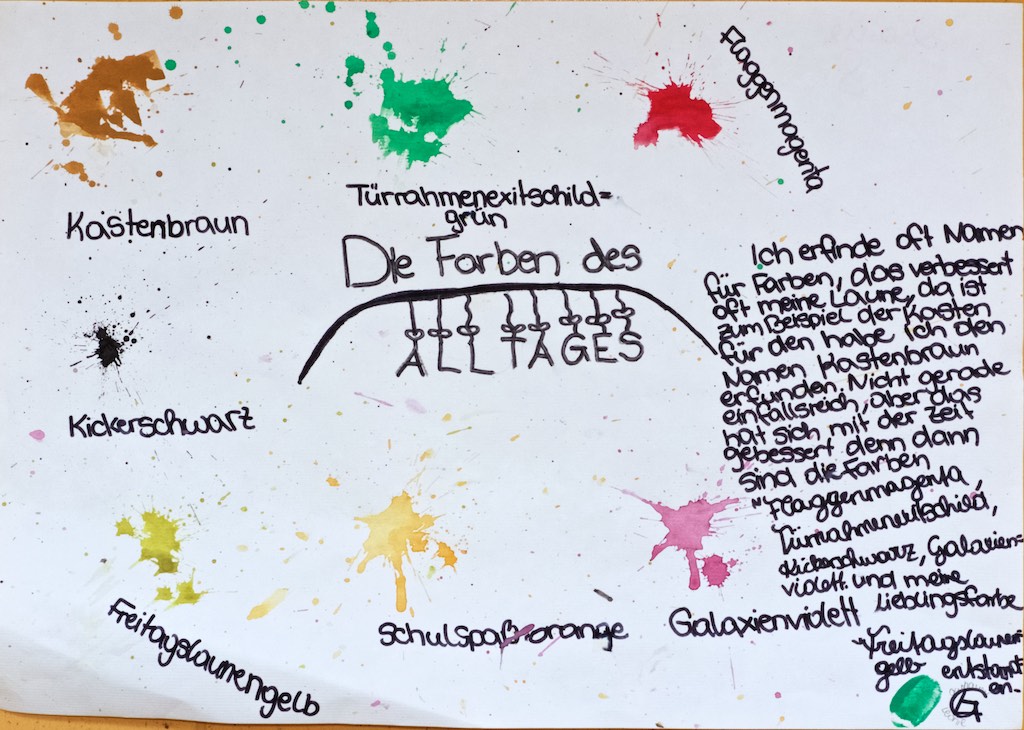 Flaggenmagenta
Kastenbraun
Türrahmenexitschild=
grün
Die Farben des
ALLTAGES
Kickerschwarz
Freitagslaunengelb
Schulspaß-orange
Galaxienvidett
Ich erfinde oft Namen
für Farben, das verbessert
oft meine Laune, da ist
zum Beispiel der Kasten
für den habe ich den
Namen Kastenbraun
erfunden. Nicht gerade
einfallsreich, aber das
hat sich mit der Zeit
gebessert denn dann
sind die Farben
"Flaggenmagenta,
Türrahmenexitschild,
Kickerschwarz, Galaxien=
violett und meine
Lieblingsfarbe
Freitagslaunen
gelb entstand
en.
G